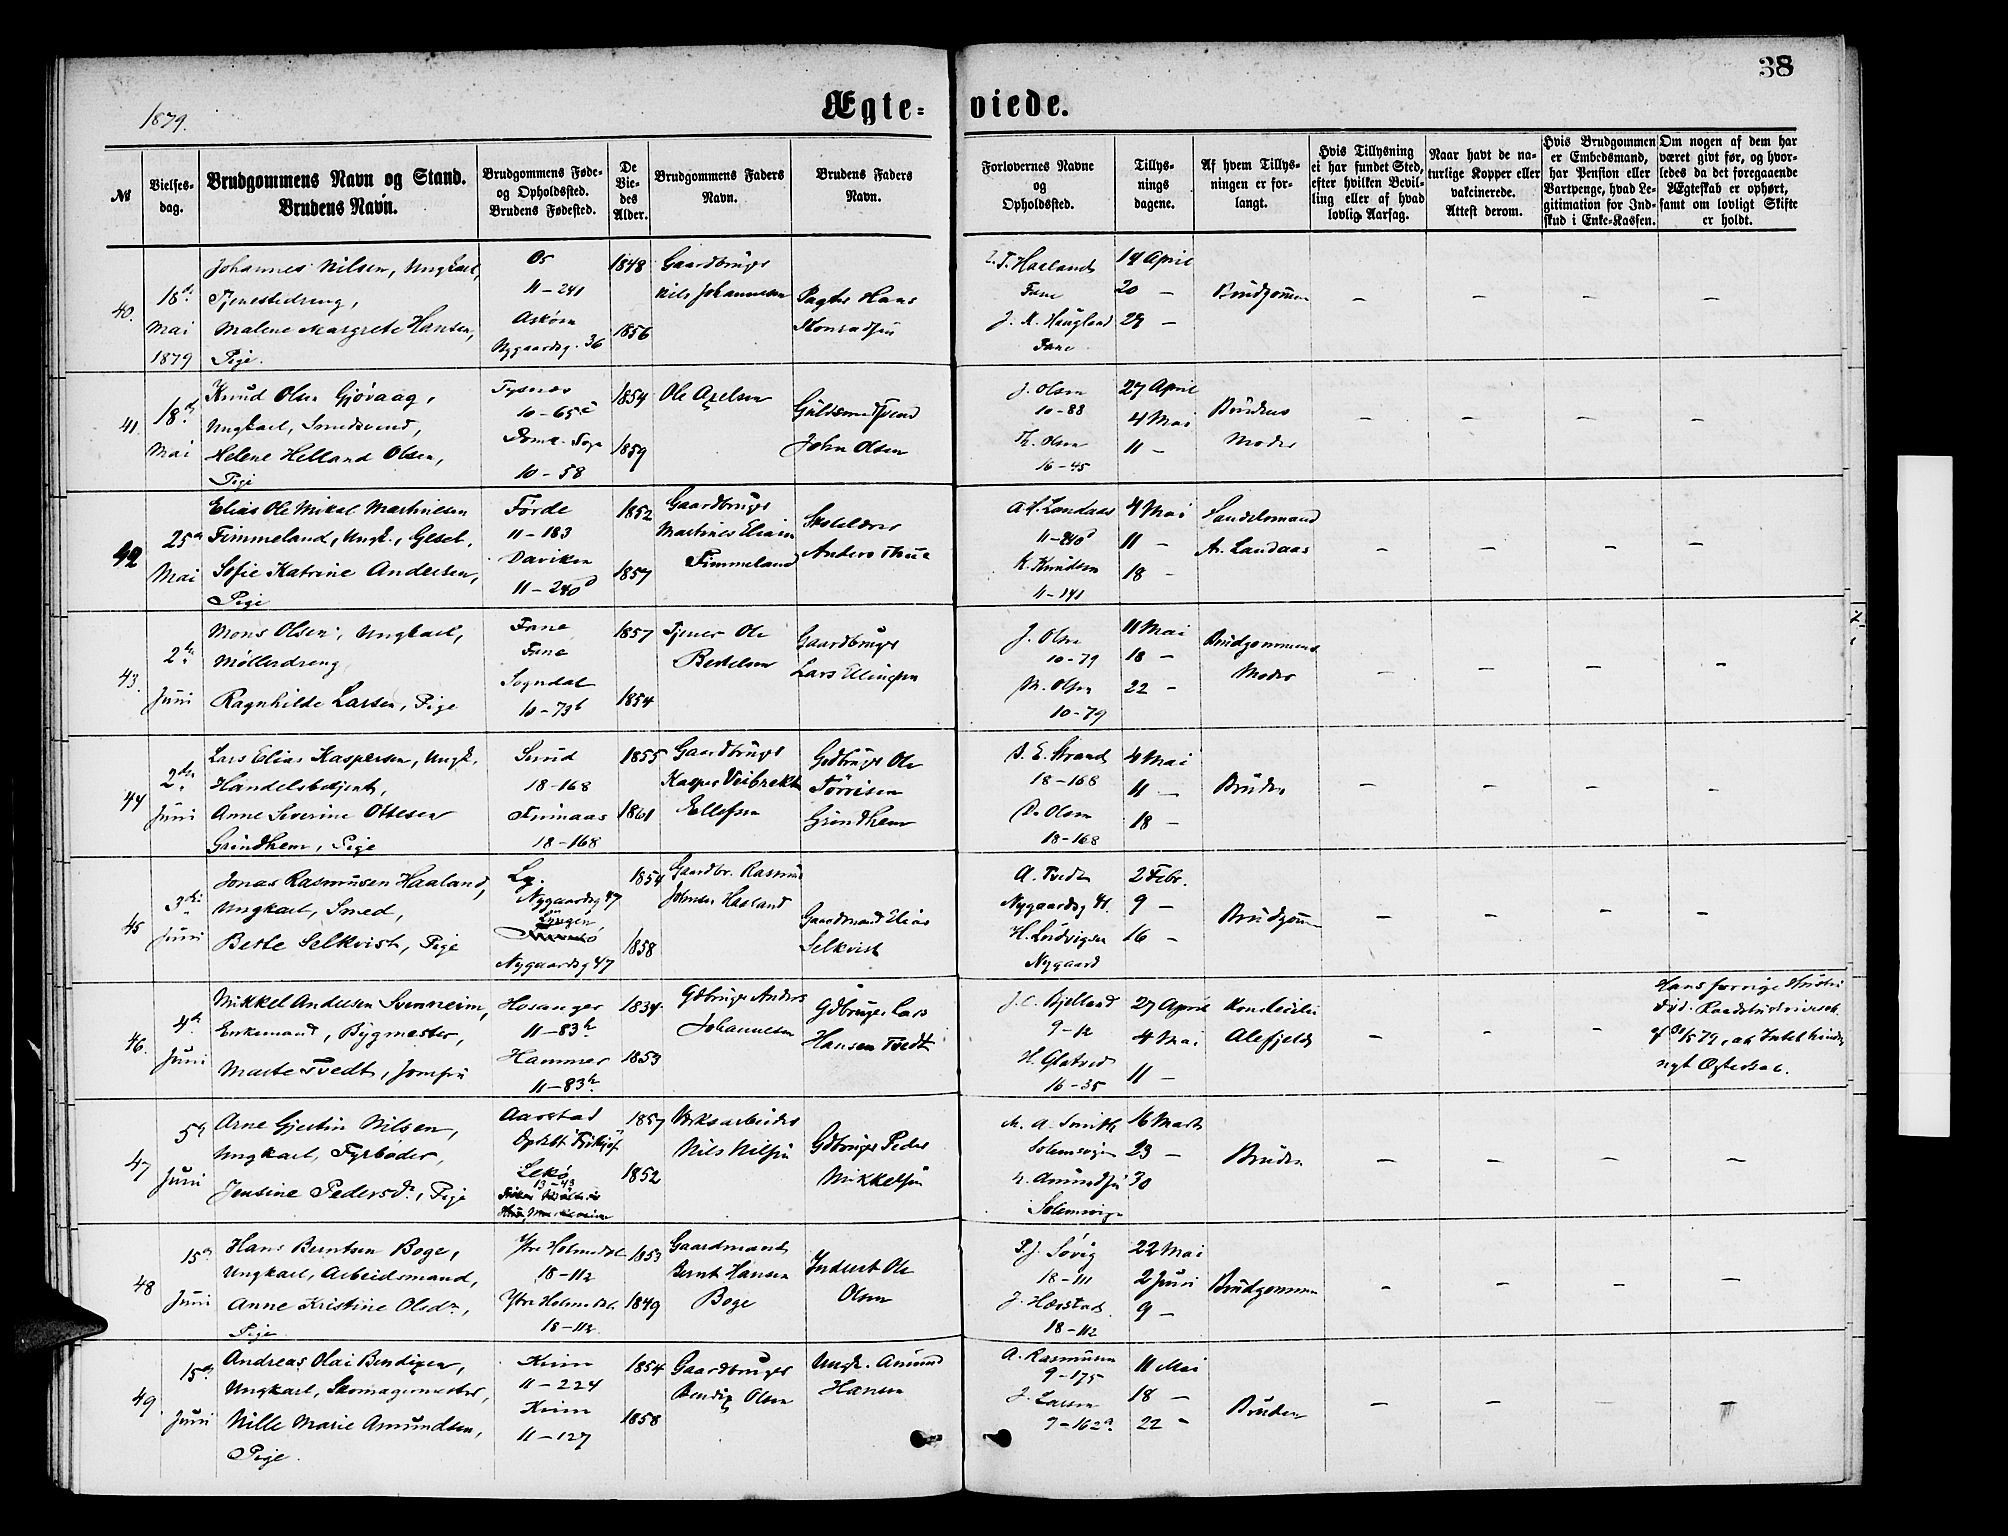 38
1879.
Ægteviede.
№
Vielsesdag.
Brudgommens Navn og Stand.
Brudens Navn.
Brudgommens Føde- og Opholdssted.
Brudens Fødested.
De Viedes Alder.
Brudgommens Faders Navn.
Brudens Faders Navn.
Forlovernes Navne og Opholdssted.
Tillysningsdagene.
Af hvem Tillysningen er forlangt.
Hvis Tillysning ei har fundet Sted, efter hvilken Bevilling eller af hvad lovlig Aarsag.
Naar havt de naturlige Kopper eller vakcinerede. Attest derom.
Hvis Brudgommen er Embedsmand, har Pension eller Vartpenge, hvad Legitimation for Indskud i Enke-Kassen.
Om nogen af dem har været givt før, og hvorledes da det foregaaende Ægteskab er ophørt, samt om lovligt Skifte er holdt.
40. 18de Mai 1879
Johannes Nilsen, Ungkarl, Tjenestedreng,
Malene Margrete Hansen, Pige.
Os 11-241
Askøen Nygaardsg. 36
1848
1856
Gaardbruger Nils Johannesen
Hans
T. Haaland Fane
J. K. Haugland Fane
14 April
20 —
27 —
Brudgommen
— — — —
41. 18de Mai
Knud Olsen Gjøvaag, Ungkarl, Smedsvend,
Helene Helland Olsen, Pige
Tysnæs 10-65
Domk. Sogn 10-58
1854
1859
Ole Axelsen
Guldsmedsvend John Olsen
J. Olsen 10-88
Th. Olsen 16-45
27 April
4 Mai
11 —
Brudens Moder
— — — —
42 25de Mai
Elias Ole Mikal Martinusen Timmeland, Ungk., Gesel.
Sofie Katrine Andersen, Pige
Førde 11-183
Daviken 11-240d
1852
1857
Gaardbruger Martines Eliasen Timmeland
Skolelærer Anders
A. Landaas 11-240d
K. Knudsen 11-141
4 Mai
11 —
18 —
Handelsmand A. Landaas
— — — —
43. 2den Juni
Mons Olsen, Ungkarl, Møllerdreng
Ragnhilde Larsen, Pige
Fane
Fane
Sogndal 10-73b
1857
1854
Tjener Ole Bertelsen
Gaardbruger Lars Ellingsen
J. Olsen 10-79
M. Olsen 10-79
11 Mai
18 —
22 —
Brudgommens Moder
— — — —
44 2den Juni
Lars Elias Kaspersen, Ungk. Handelsbetjent,
Anne Severine Ottesen Grindhem, Pige
Sund 18-168
Finnaas 18-168
1855
1861
Gaardbruger Kasper Veibrekt Ellefsen
Gdbruger Ole Tørrisen Grindhem
E. Strand 18-168
D. Olsen 18-168
4 Mai
11 —
18 —
Bruden
— — — —
45 3die Juni
Jonas Rasmusen Haaland, Ungkarl, Smed,
Berte Selkvist, Pige
Nygaardsg 47
Lyngen
Nygaardsg 47
1854
1858
Gaardbr. Rasmus Johnsen Haaland
Gaardmand Elias Selkvist
A. Tvedt Nygaardsg 41.
H. Ludvigsen Nygaard
2 Febr.
9 —
16 —
Brudgom
— — — —
46. 4de Juni
Mikkel Andersen Svenheim, Enkemand, Bygmester,
Marte Tvedt, Jomfru
Hosanger 11-83b
Hammer 11-83b
1834
1853
Gdbruger Anders Johannesen
Gdbruger Lars Hansen Tvedt
Bjelland 9-12
H. Glatved 16-35
27 April
4 Mai
11 —
Alefjeld
— — —
Hans forrige Hustru død.
79, at Intet hindrer nyt Ægteskab.
47 5te Juni
Arne Gjertin Nilsen, Ungkarl, Fyrbøder,
Jensine Pedersd., Pige
Aarstad
Lekø 13-43
1857
1852
Verksarbeider Nils Nilsen
Gdbruger Peder Mikkelsen
M. A. Smith Solemsvigen
Amundsen Solemsvigen
16 Marts
23 —
30
Bruden
— — — —
48 15de Juni
Hans Berntsen Boge, Ungkarl, Arbeidsmand,
Anne Kristine Olsdr., Pige
Ytre Holmedal 18-112
Ytre Holmedal. 18-112
1853
1849
Gaardmand Bernt Hansen Boge
Inderst Ole Olsen
P. J. Søvig 18-111
J. Hærstad 18-112
22 Mai
2 Juni
9 —
Brudgommen
— — — —
49. 15de Juni
Andreas Olai Bendixen, Ungkarl, Skomagermester,
Nille Marie Amundsen, Pige.
Kinn 11-224
Kinn 11-127
1854
1858
Gaardbruger Bendix Olsen
Ungk. Amund Hansen
A. Rasmusen 9-175
J. Larsen 9-162a
11 Mai
18 —
22 —
Bruden
— — — —